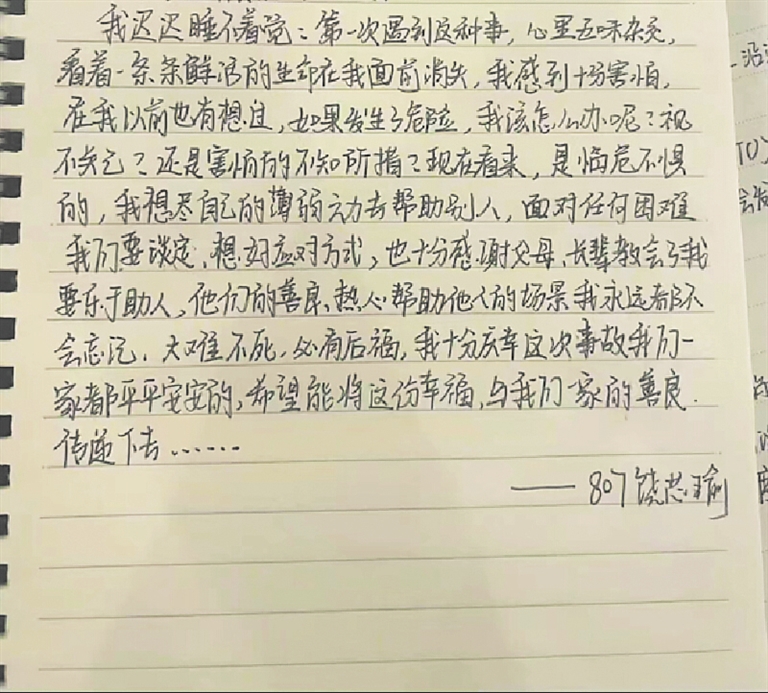 我迟迟睡不着觉：第一次遇到这种事，心里五味杂交，
看着一条条鲜活的生命在我面前消失，我感到十分害怕，
在我以前也有想过，如果发生了危险，我该怎么办呢？视
不关己？还是害怕的不知所措？现在看来，是临危不惧
的，我想尽自己的薄弱之力去帮助别人，面对任何困难
我们要淡定、想好应对方式，也十分感谢父母、长辈教会了我
要乐于助人，他们的善良、热心帮助他人的场景我永远都不
会忘记，大难不死，必有后福，我十分庆幸这次事故我们一
家都平平安安的，希望能将这份幸福，与我们一家的善良
传递下去……
——807饶芯瑜